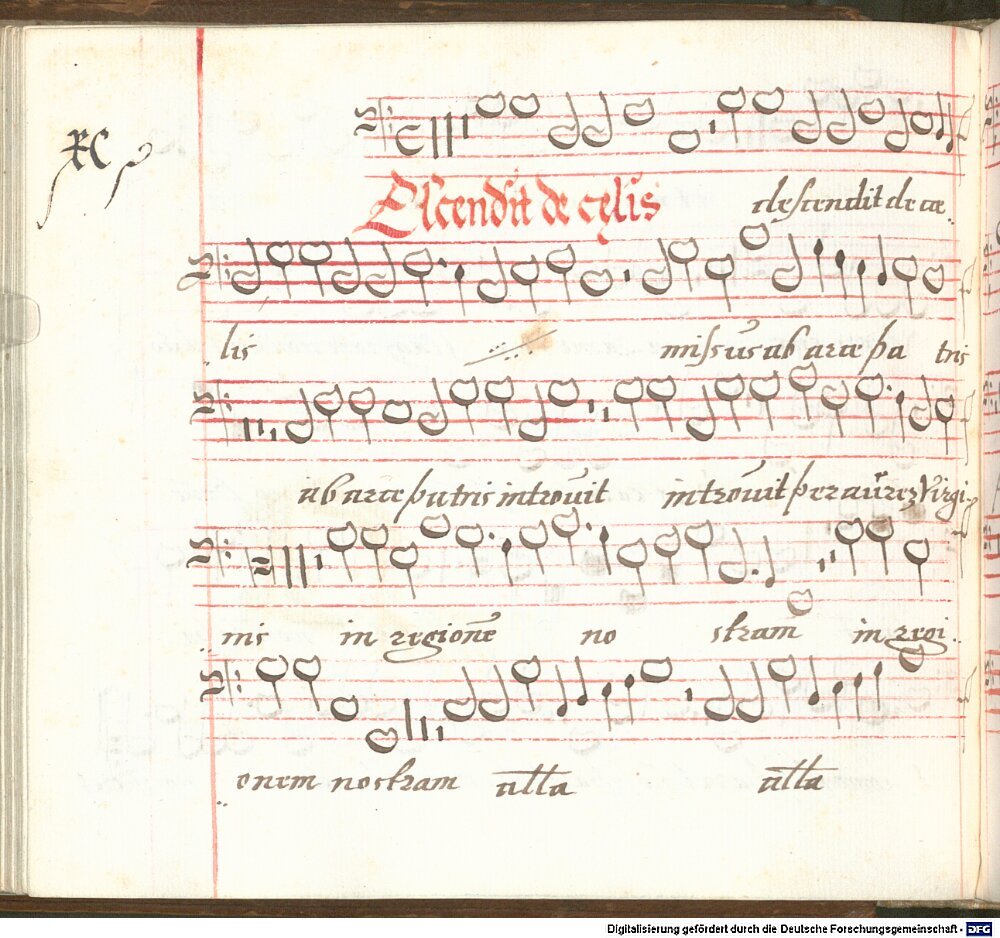 xc
Descendit de cęlis descendit de cæ
lis missus ab arce pa tris
ab arce patris introuit introuit per aurez Virgi
nis in regionē no stram in regi
onem nostram alla alla
Digitalisierung gefördert durch die Deutsche Forschungsgemeinschaft - DFG